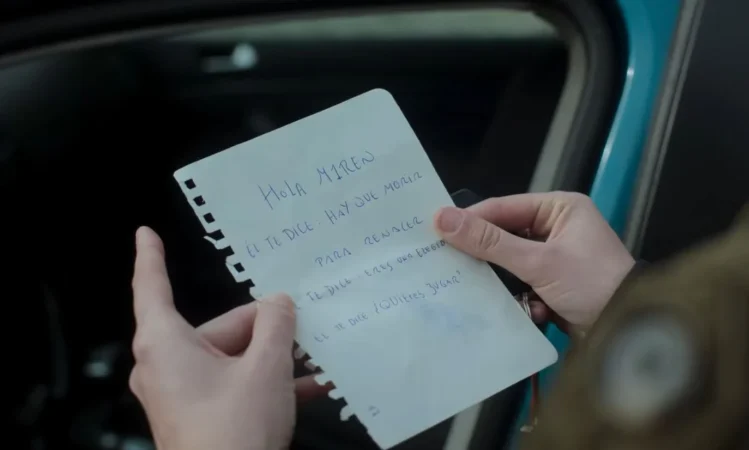 HOLA MIREN
EL TE DICE: HAY QUE MORIR
PARA RENACER
TE DICE: ERES UNA
EL TE DICE ¿QUIERES JUGAR?